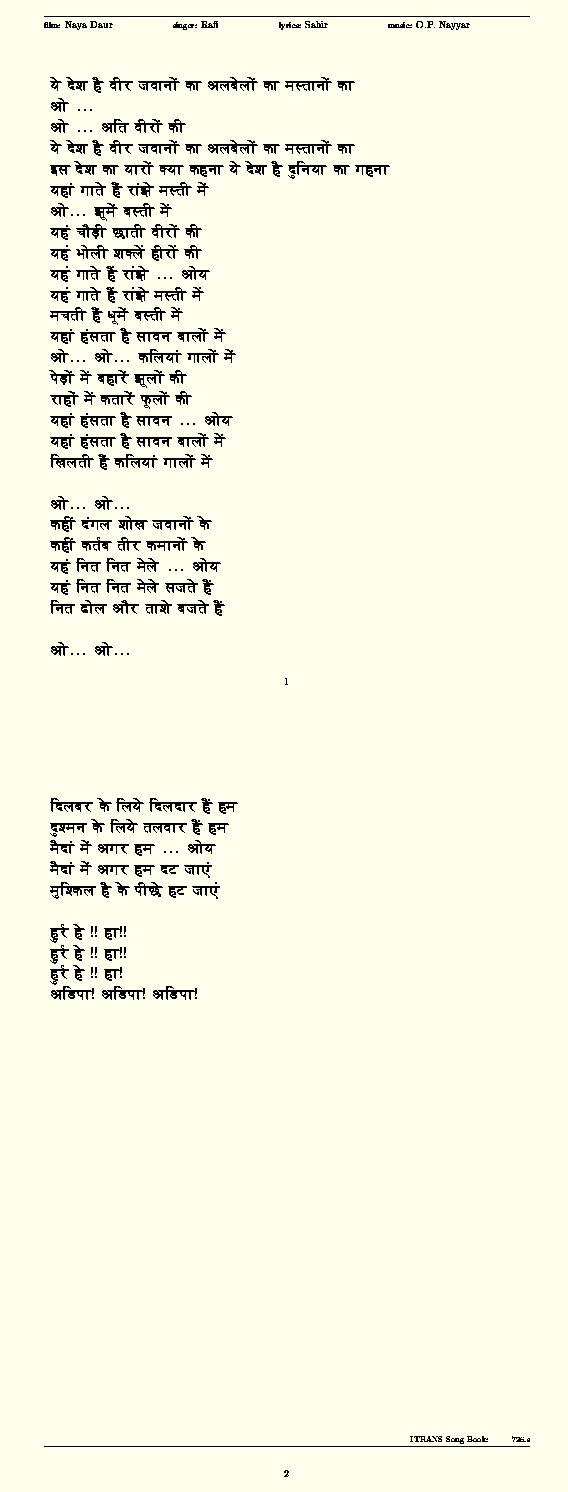 film: Naya Daur singer: Rafi lyrics: Sahir music: O.P. Nayyar
ये देश है वीर जवानों का अलबेलों का मस्तानों का
ओ ...
ओ ... अति वीरों की
ये देश है वीर जवानों का अलबेलों का मस्तानों का
इस देश का यारों क्या कहना ये देश है दुनिया का गहना
यहां गाते हैं रांझे मस्ती में
ओ... झूमें बस्ती में
यहं चौड़ी छाती वीरों की
यहं भोली शक्लें हीरों की
यहं गाते हैं रांझे ... ओय
यहं गाते हैं रांझे मस्ती में
मचती हैं धूमें बस्ती में
यहां हंसता है सावन बालों में
ओ... ओ... कलियां गालों में
पेड़ों में बहारें झूलों की
राहों में कतारें फूलों की
यहां हंसता है सावन ... ओय
यहां हंसता है सावन बालों में
खिलती हैं कलियां गालों में
ओ... ओ...
कहीं दंगल शोख जवानों के
कहीं कर्तब तीर कमानों के
यहं नित नित मेले ... ओय
यहं नित नित मेले सजते हैं
नित ढोल और ताशे बजते हैं
ओ... ओ...
1
दिलबर के लिये दिलदार हैं हम
दुश्मन के लिये तलवार हैं हम
मैदां में अगर हम ... ओय
मैदां में अगर हम दट जाएं
मुश्किल है के पीछे हट जाएं
हुर्रे हे !! हा!!
हुर्रे हे !! हा!!
हुर्रे हे !! हा!
अडिपा! अडिपा! अडिपा!
ITRANS Song Book
2